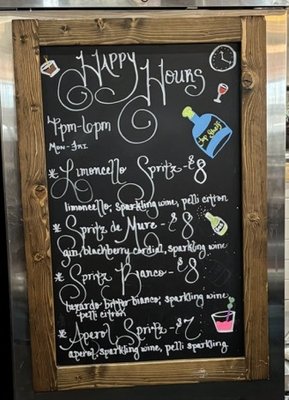 Happy Hours
4pm-6pm
Mon-Fri
* Limoncello Spritz - $8
limoncello, sparkling wine, pelli citron
* Spritz de Mure - $8
gin, blackberry cordial, sparkling wine
* Spritz Bianco - $8
berardo bitter bianco, sparkling wine
pelli citron
* Aperol Spritz - $7
aperol, sparkling wine, pelli sparkling